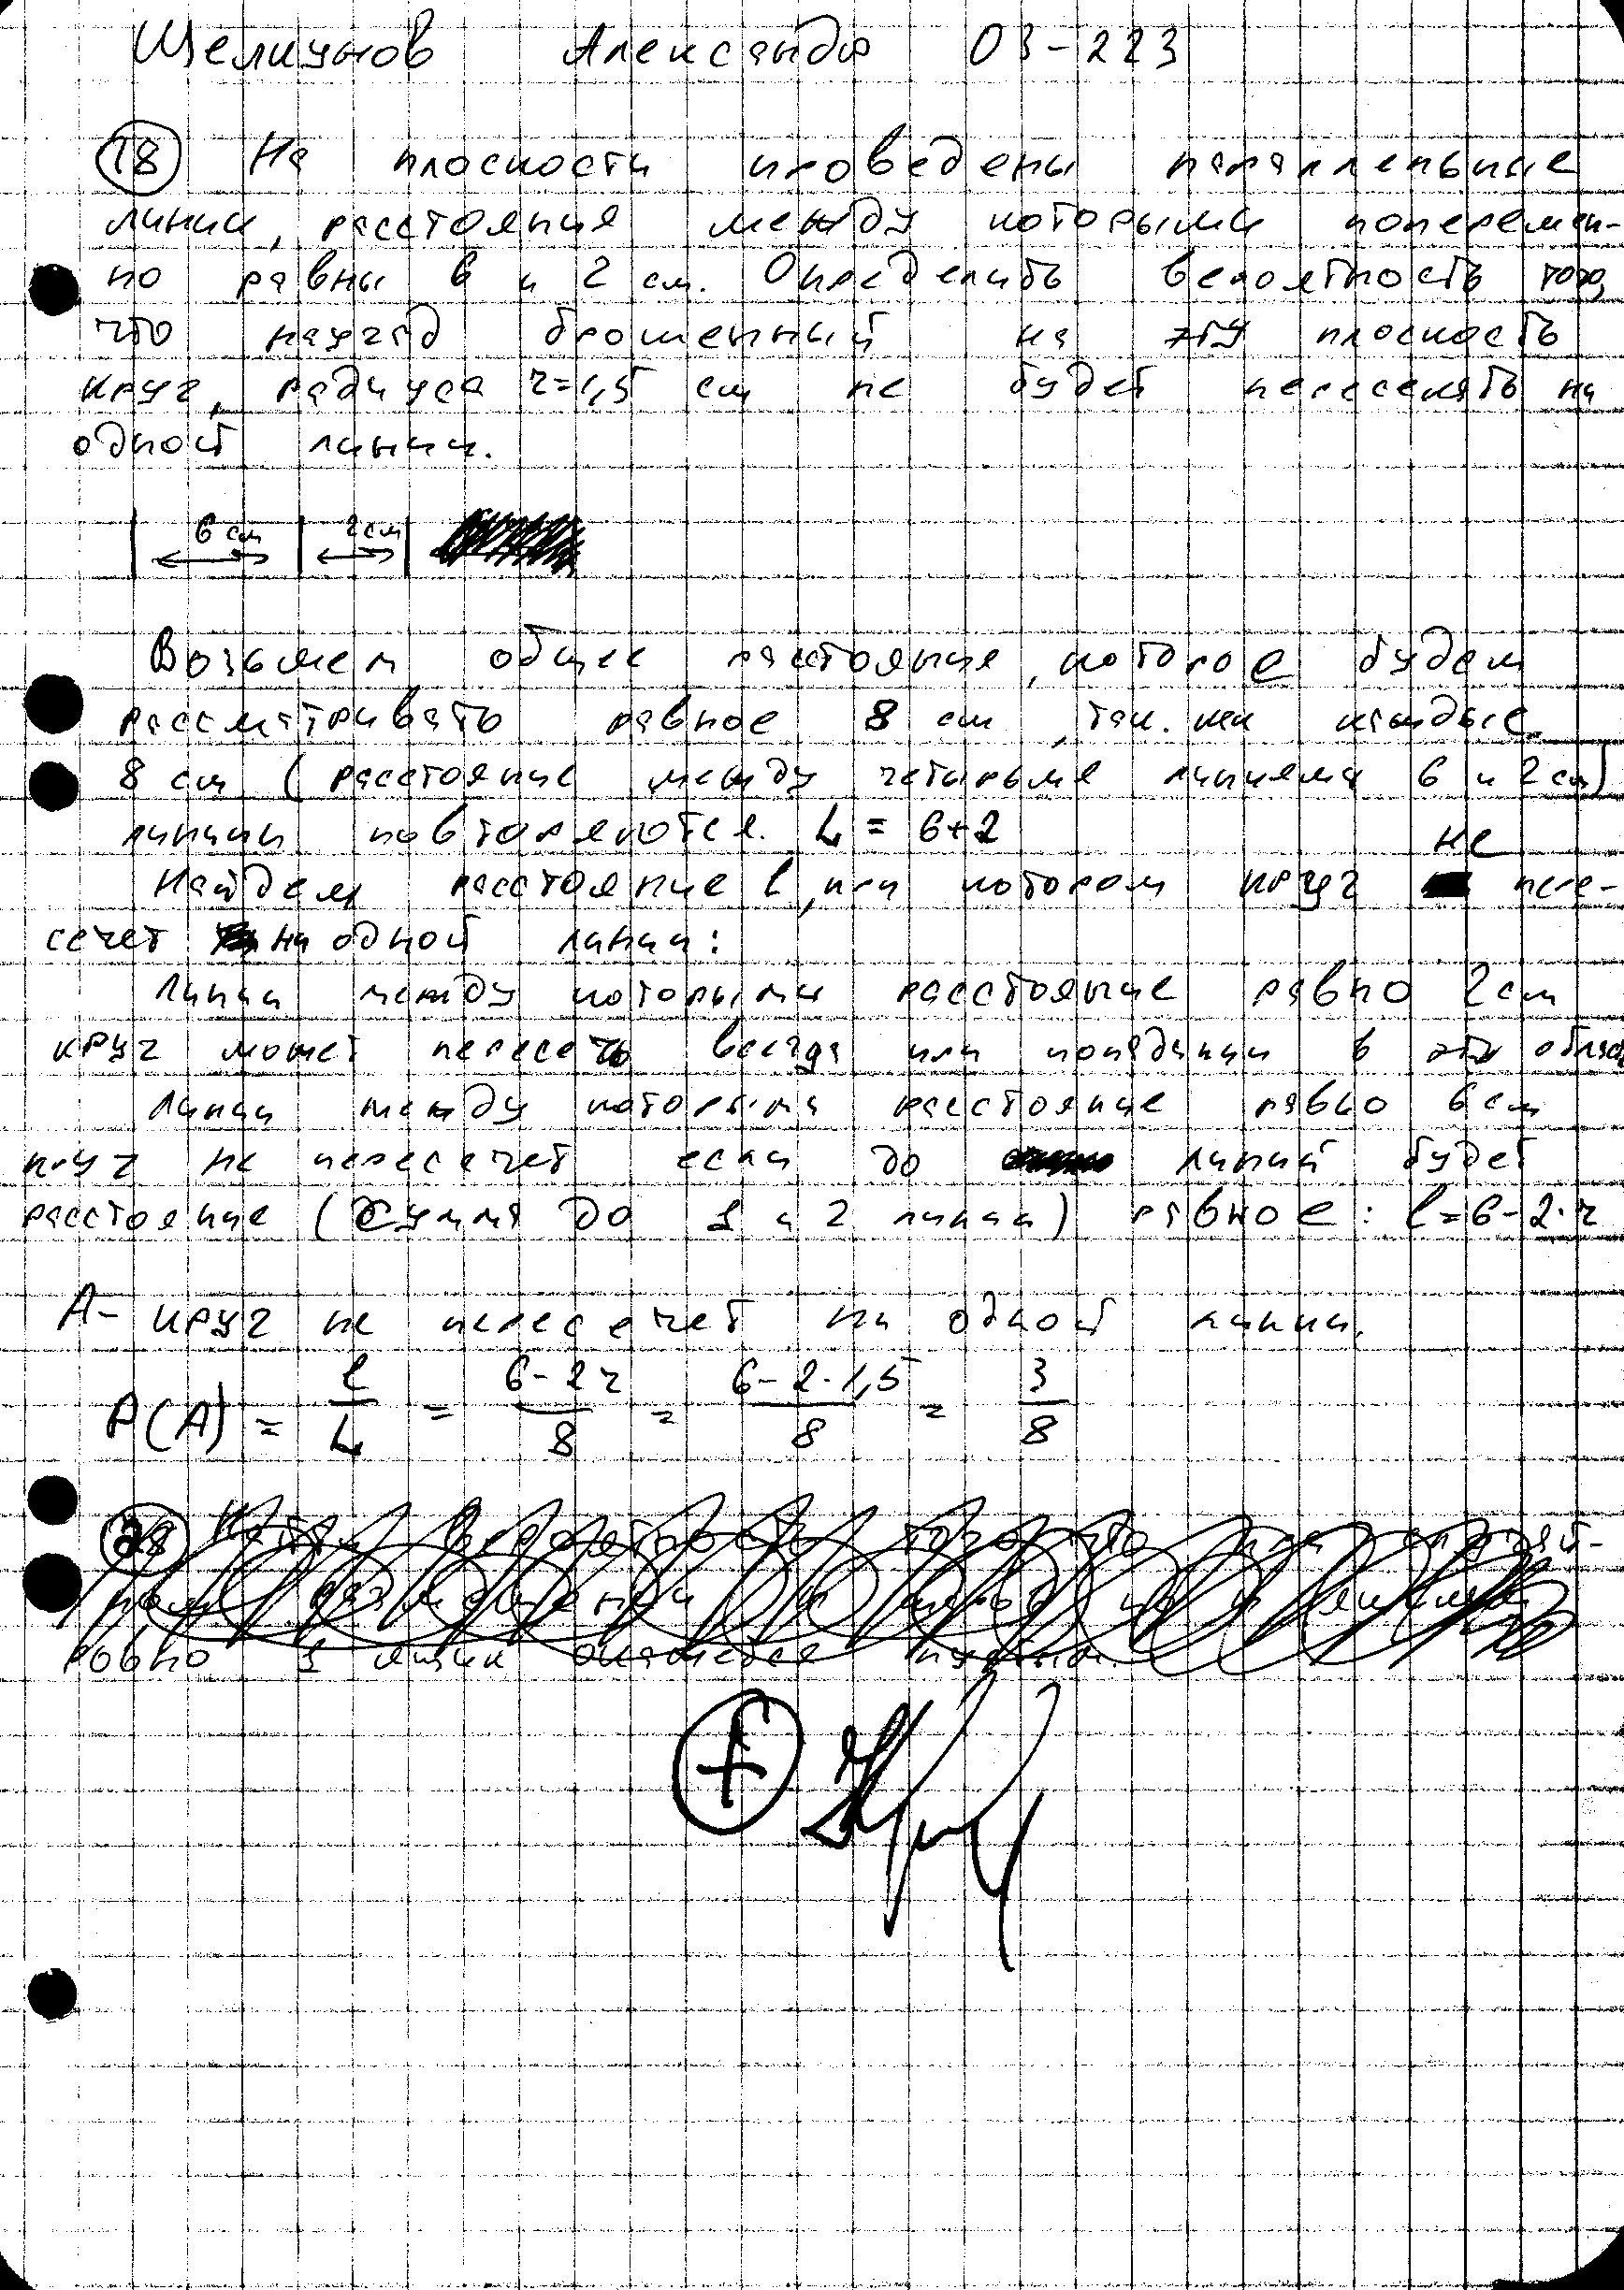 Щелкунов Александр 03-223
18 На плоскости проведены параллельные
линии, расстояния между которыми поперемен-
но равны 6 и 2 см. Определить вероятность того,
что наугад брошенный на эту плоскость
круг, радиуса r=1,5 см не будет пересекать ни
одной линии.
6 см 2 см
Возьмем общее расстояние, которое будем
рассматривать равное 8 см, так. как каждые
8 см (расстояние между четырьмя линиями 6 и 2 см)
линии повторяются. L = 6+2
не
Найдем расстояние l, при котором круг пере-
сечет ни одной линии:
Линии между которыми расстояние равно 2 см
круг может пересечь всегда при попадании в эту
Линии между которыми расстояние равно 6 см
круг не пересечет если до линий будет
расстояние (сумма до 1 и 2 линии) равное: l=6-2·r
A- круг не пересечет ни одной линии.
P(A) = l/L = 6-2r/8 = 6-2·1,5/8 = 3/8
ровно 3 окажется
+